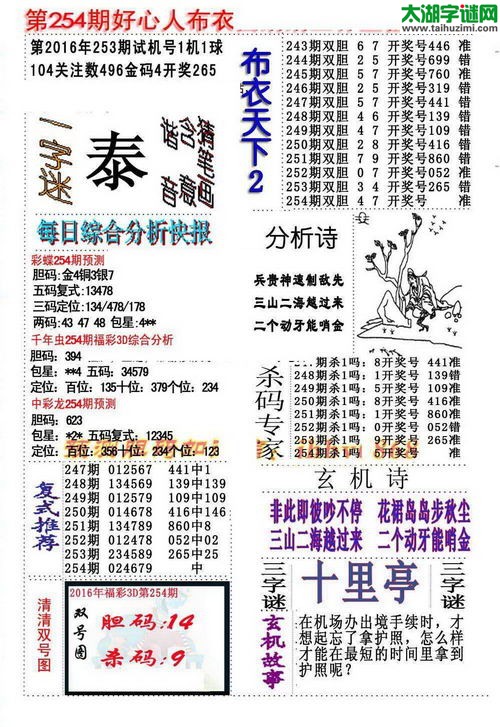 第254期好心人布衣
太湖字谜网
www.taihuzimi.com
第2016年253期试机号1机1球
104关注数496金码4开奖265
一字迷
泰
猜笔画
含意
猜音
布衣天下2
243期双胆 6 7 开奖号446 准
244期双胆 2 5 开奖号699 错
245期双胆 0 7 开奖号760 准
246期双胆 2 5 开奖号319 错
247期双胆 2 5 开奖号441 错
248期双胆 4 6 开奖号139 错
249期双胆 4 7 开奖号109 错
250期双胆 2 8 开奖号416 错
251期双胆 7 9 开奖号860 错
252期双胆 0 7 开奖号052 准
253期双胆 3 4 开奖号265 错
254期双胆 4 7 开奖号 准
每日综合分析快报
彩蝶254期预测
胆码:金4铜3银7
五码复式:13478
三码定位:134/478/178
两码:43 47 48 包星:4**
千年虫254期福彩3D综合分析
胆码: 394
包星: **4 五码: 34579
定位: 百位: 135十位: 379个位: 234
中彩龙254期预测
胆码: 623
包星: *2* 五码复式: 12345
定位: 百位: 356十位: 234个位: 123
分析诗
兵贵神速制敌先
三山二海越过来
二个动牙能哨金
杀码专家
247期杀1吗: 8开奖号 441准
248期杀1吗: 1开奖号 139错
249期杀1吗: 1开奖号 109错
250期杀1吗: 2开奖号 416准
251期杀1吗: 4开奖号 860准
252期杀1吗: 0开奖号 052错
253期杀1吗: 3开奖号 265准
254期杀1吗: 5开奖号 准
复式推荐
247期 012567 441中1
248期 134569 139中139
249期 012579 109中109
250期 014678 416中146
251期 134789 860中8
252期 012478 052中02
253期 234589 265中25
254期 024679 中
玄机诗
非此即彼吵不停 花裙岛岛步秋尘
三山二海越过来 二个动牙能哨金
清清双号图
2016年福彩3D第254期
双号图
胆码:14
杀码:9
三字谜
十里亭
三字谜
玄机故事
在机场办出境手续时,才
想起忘了拿护照,怎么样
才能在最短的时间里拿到
护照呢?